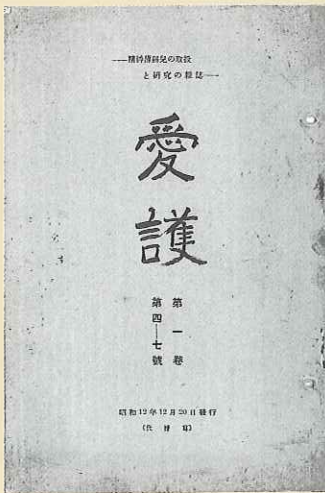 ——精神薄弱兒の敎養
と研究の雜誌——
愛護
第一卷
第四—七號
昭和12年12月20日發行
(代謄寫)